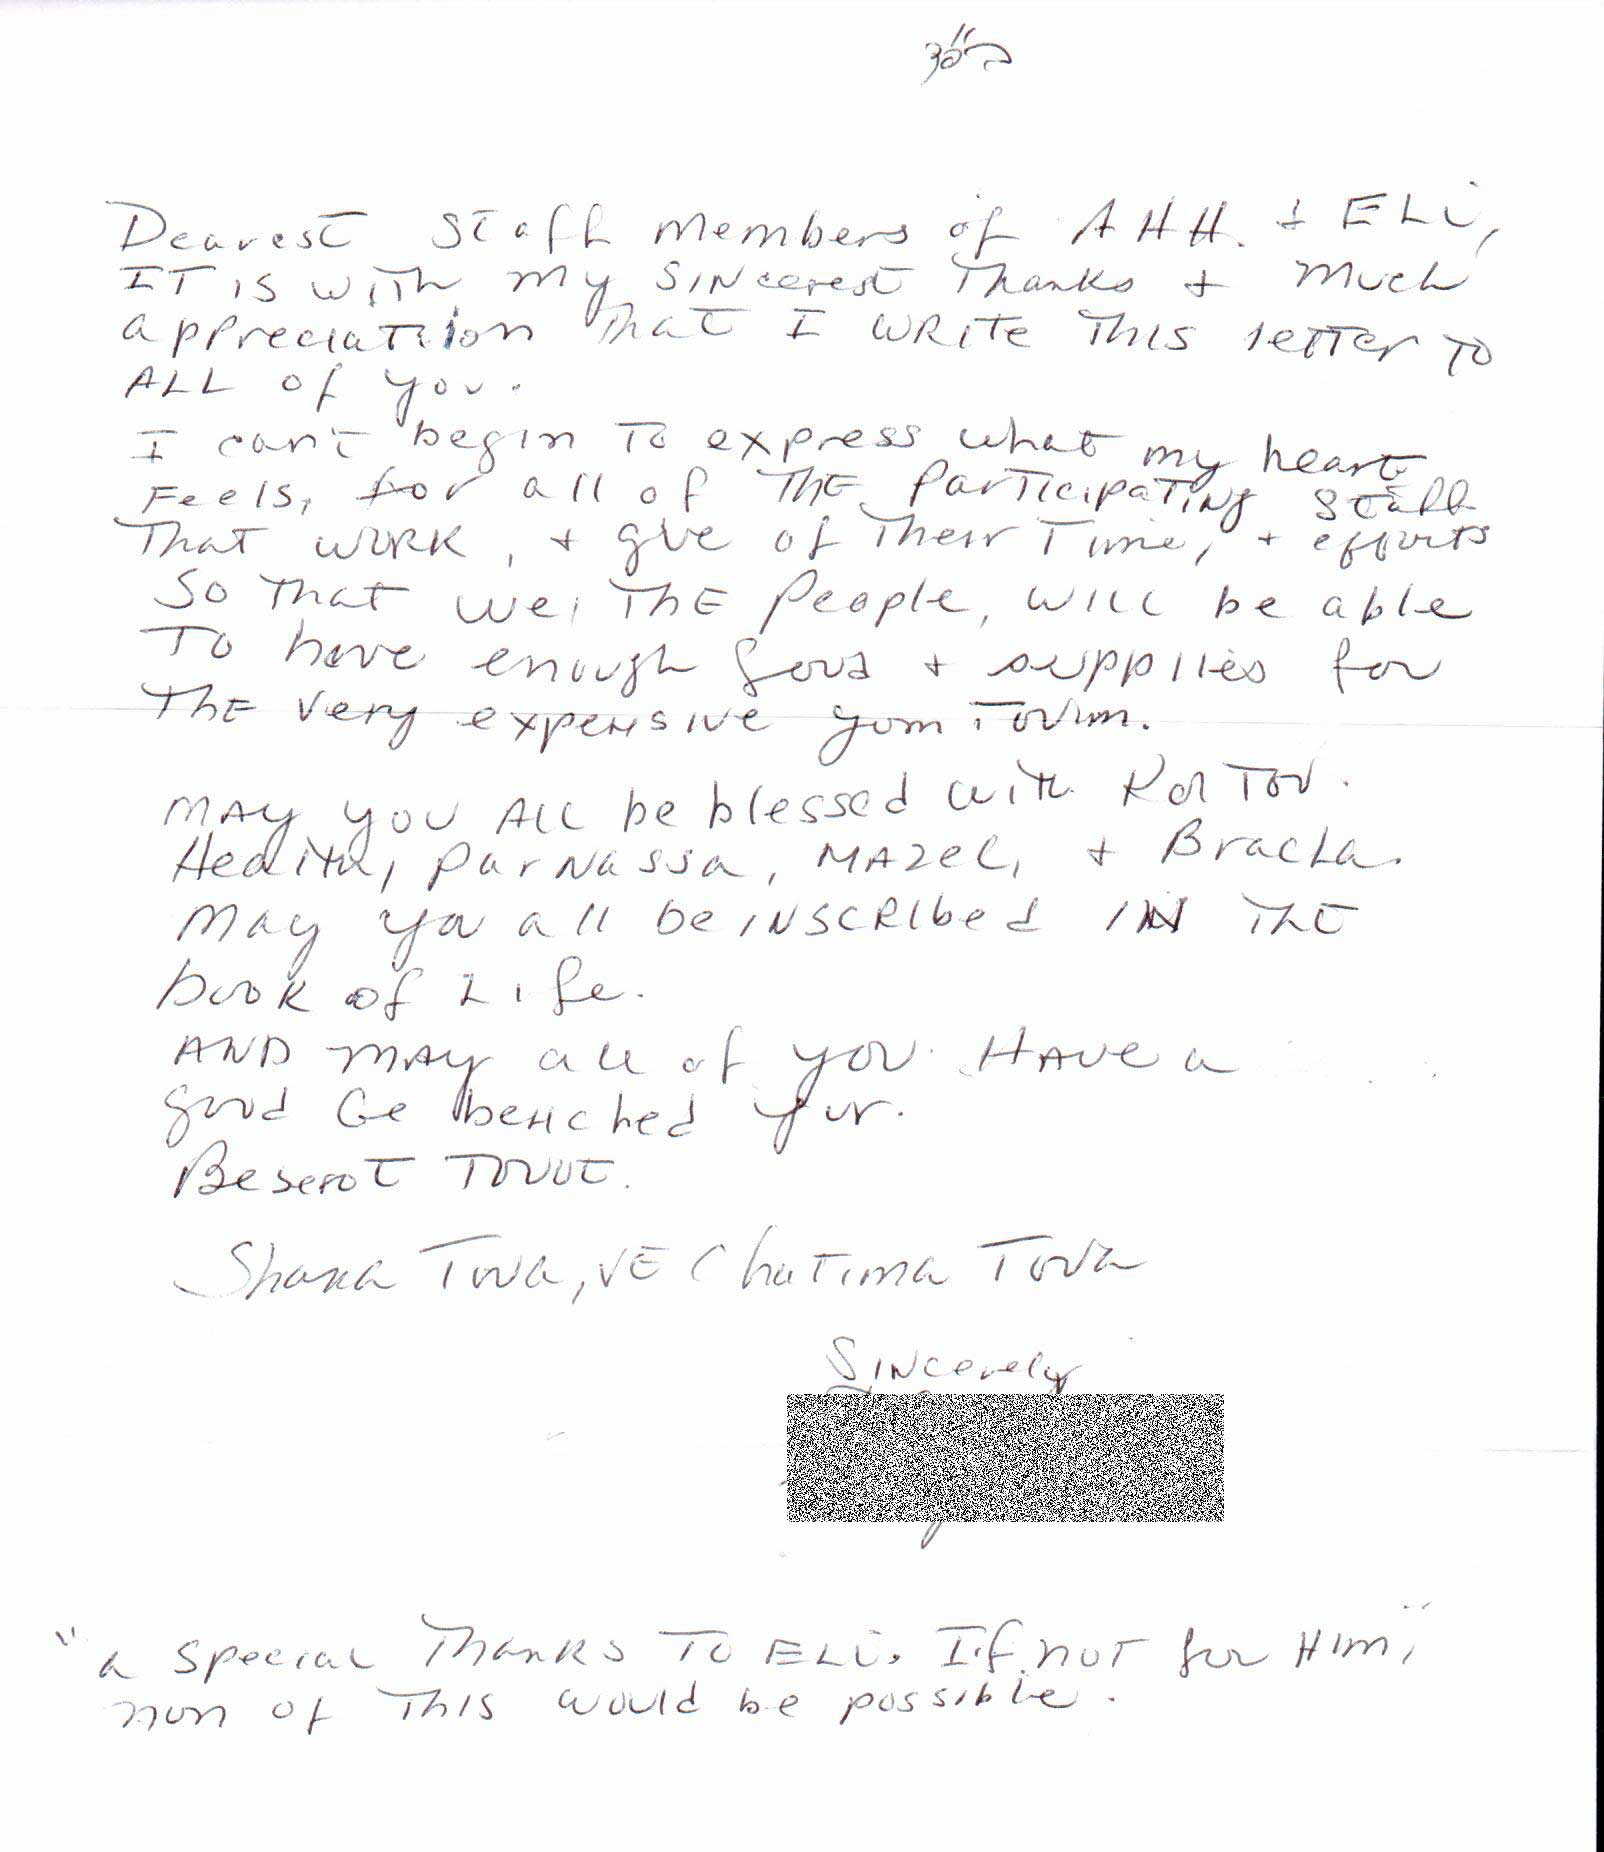 בס"ד
Dearest Staff members of AHH. + ELi,
IT is with my SiNcerest Thanks + Much
appreciation That I WRite This letter to
ALL of you.
I can't begin To express what my heart
Feels, for all of The Participating Staff
That WORK, + give of Their Time, + efforts
So that we, ThE People, will be able
To have enough food + supplies for
ThE very expensive yom Tovim.
MAy you All be blessed with Kol Tov.
Health, parNassa, MAzel, + Bracha.
May you all be iNSCRibed IN ThE
book of Life.
AND MAy all of you HAve a
good Ge benched yur.
Beserot Tovot.
Shana Tova, VE Chatima Tova
Sincerely
"a special Thanks To ELi. If not for Him,"
non of This would be possible.